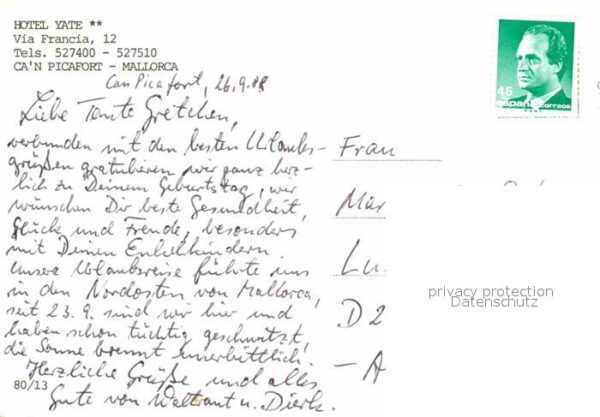 HOTEL YATE **
Via Francia, 12
Tels. 527400 - 527510
CA'N PICAFORT - MALLORCA
Can Picafort, 26.9.88
Liebe Tante Gretchen,
verbunden mit den besten Urlaubs-
grüßen gratulieren wir ganz herz-
lich zu Deinem Geburtstag, wir
wünschen Dir beste Gesundheit,
Glück und Freude, besonders
mit Deinen Enkelkindern.
Unsere Urlaubsreise führte uns
in den Nordosten von Mallorca,
seit 23.9. sind wir hier und
haben schon tüchtig geschwitzt,
die Sonne brennt unerbittlich!
Herzliche Grüße und alles
Gute von Waltraut u. Dierk.
80/13
45
españa correos
Frau
Mar
Lu
D2
-A
privacy protection
Datenschutz